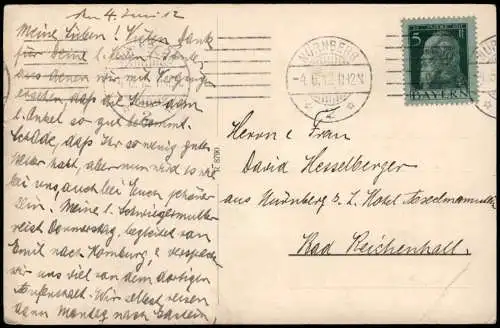 den 4. Juni 12
Meine Lieben! Vielen Dank
für Deine l. Zeilen,
aus denen wir mit Vergnügen
ersehen, daß die Kur dem
l. Onkel so gut bekommt.
Schade, daß Ihr so wenig gutes
Wetter habt, aber nun wird es wie
bei uns auch bei Euch schöner
sein. Meine l. Schwiegermutter
reist Donnerstag, begleitet von
Emil nach Homburg, &
wir uns viel von dem dortigen
Aufenthalt. Wir selbst reisen
dann Montag nach
NÜRNBERG
2
5
BAYERN
Herrn & Frau
David Hesselberger
aus Nürnberg z. Z. Hotel
Bad Reichenhall.